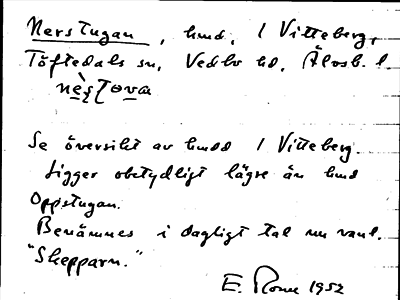 Nerstugan, hmd, 1 Vitteberg,
Töftedals sn, Vedbo hd, Älvsb. l.
nèʂtova
Se översikt av hmdd 1 Vitteberg.
Ligger obetydligt lägre än hmd
Oppstugan.
Benämnes i dagligt tal nu vanl.
"Skepparn."
E. 1952